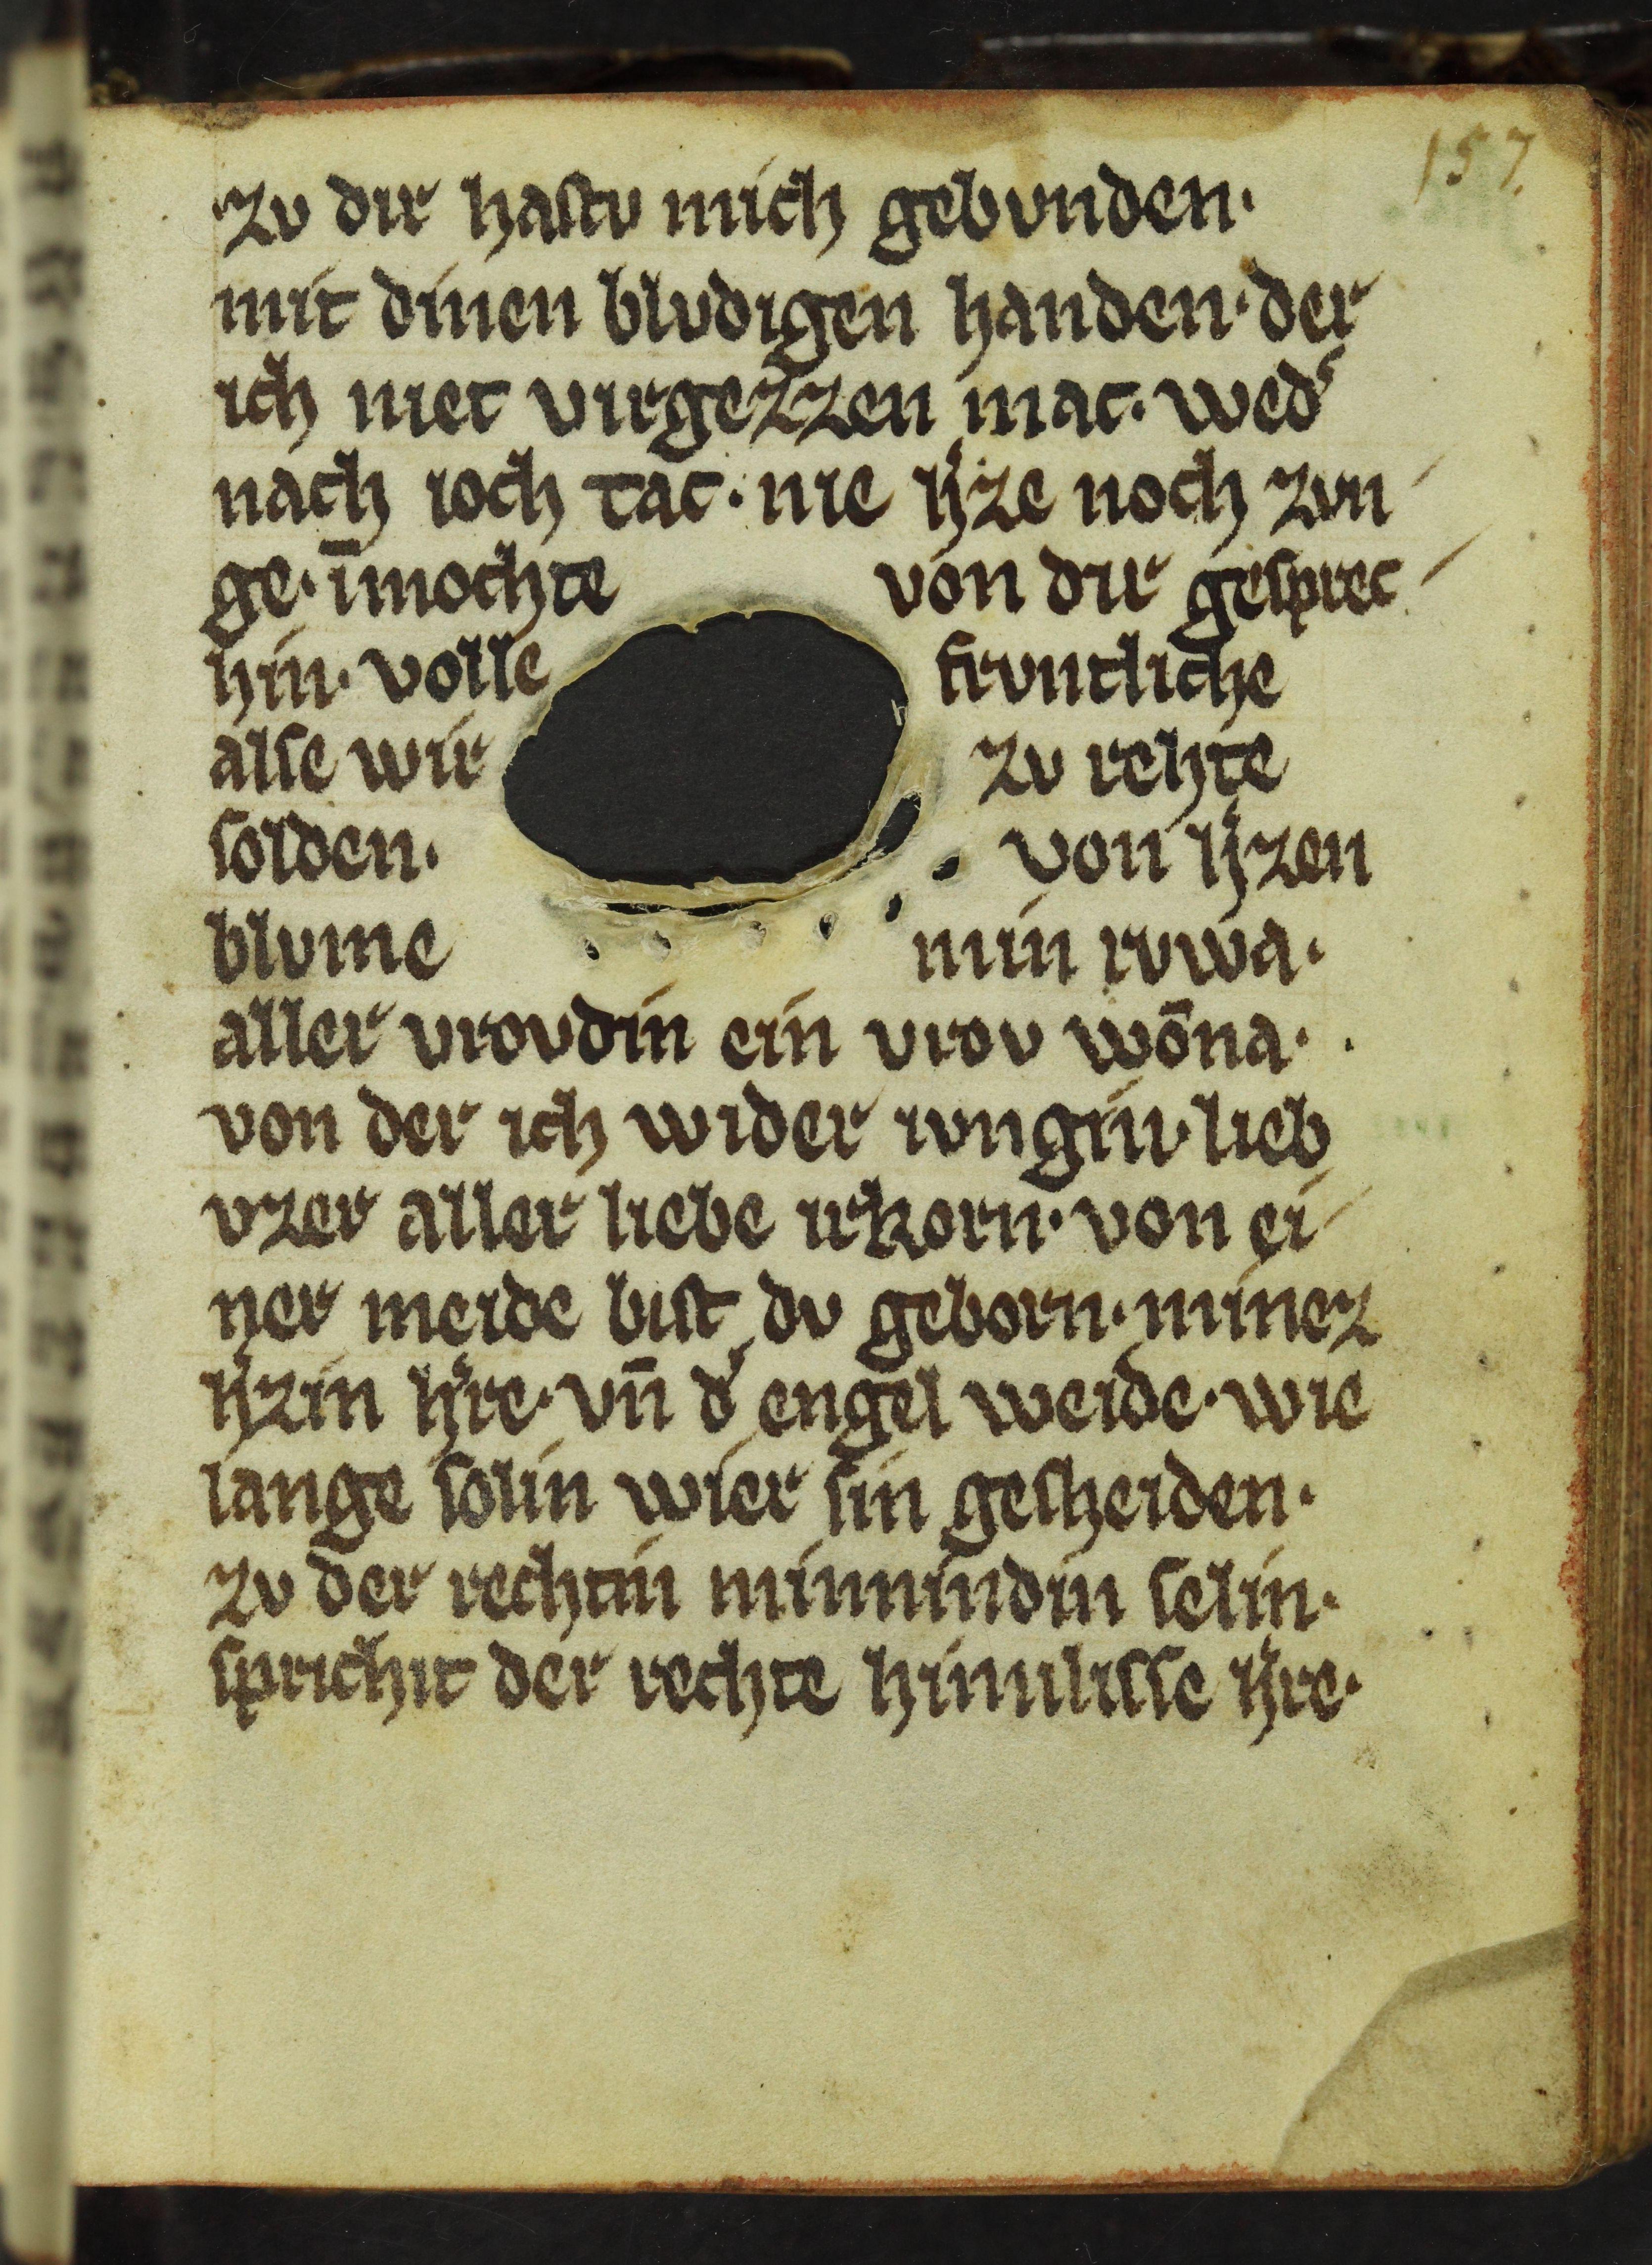 157.
zv dir haſtv mich gebvnden·
mit dinen blvdigen handen· der
ich niet virgezzen mac· wedˀ
nach ioch tac· nie hˀze noch zvn
ge· īmochte von dir geſprec
hin· volle frvntliche
alſe wir zv rehte
ſolden· von hˀzen
blvme min rvwa·
aller vrovdin ein vrov wōna·
von der ich wider ivngin· lieb
vzer aller liebe irkorn· von ei
ner meide biſt dv geborn· minez
hˀzin hˀre· vn̄ dˀ engel weide· wie
lange ſolin wier ſin geſheiden·
zv der rechtin minnindin ſelin·
ſprichit der rechte himiliſſe hˀre·